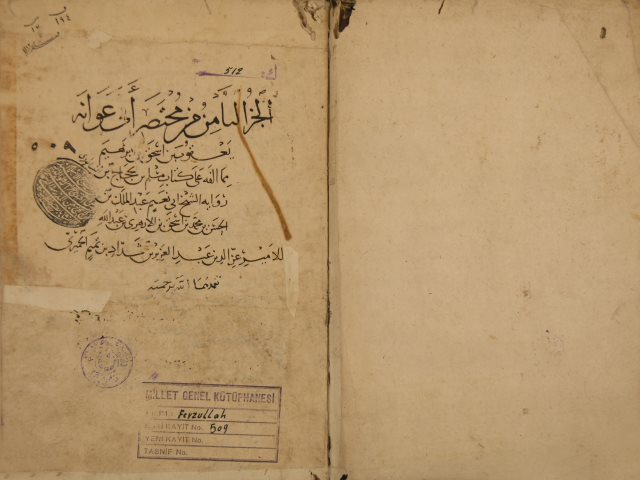 512
الجزء الثامن من مختصر أبي عوانة
٥٠٩
يعقوب بن اسحق بن ابرهيم
مما الفه على كتاب مسلم بن حجاج
رواية الشيخ ابي نعيم عبد الملك بن
الحسن بن محمد بن اسحق بن الازهري بن عبد الله
للامير عز الدين عبد العزيز بن شداد بن تميم الحميري
تغمدهما الله برحمته
MİLLET GENEL KÜTÜPHANESİ
Feyzullah
ESKİ KAYIT No. 509
YENİ KAYIT No.
TASNİF No.